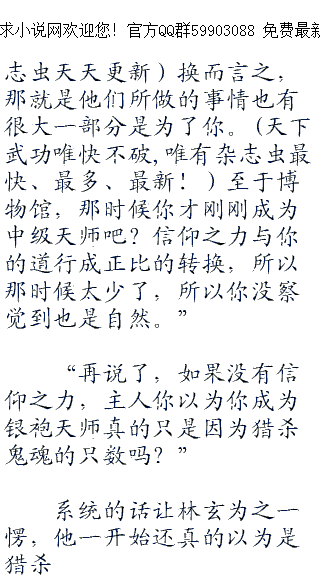 求小说网欢迎您！官方QQ群59903088 免费最新
志虫天天更新）换而言之，
那就是他们所做的事情也有
很大一部分是为了你。(天下
武功唯快不破,唯有杂志虫最
快、最多、最新！）至于博
物馆，那时候你才刚刚成为
中级天师吧？信仰之力与你
的道行成正比的转换，所以
那时候太少了，所以你没察
觉到也是自然。”
“再说了，如果没有信
仰之力，主人你以为你成为
银袍天师真的只是因为猎杀
鬼魂的只数吗？”
系统的话让林玄为之一
愣，他一开始还真的以为是
猎杀